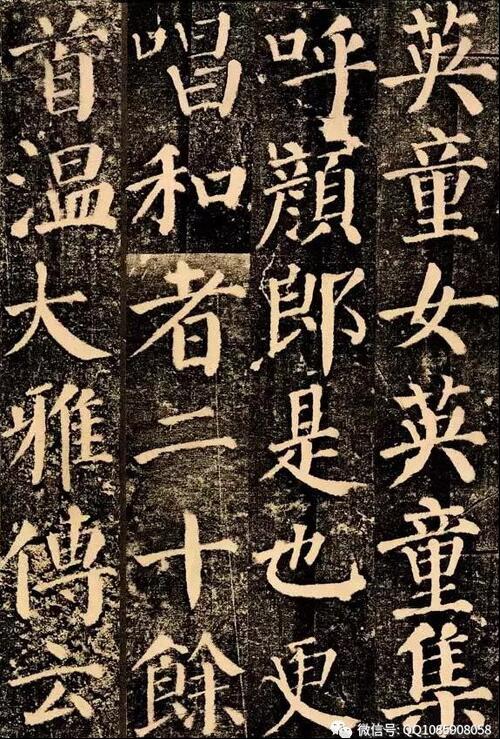 英童女英童集
呼顔郎是也更
唱和者二十餘
首温大雅傳云
微信号: QQ1085908058